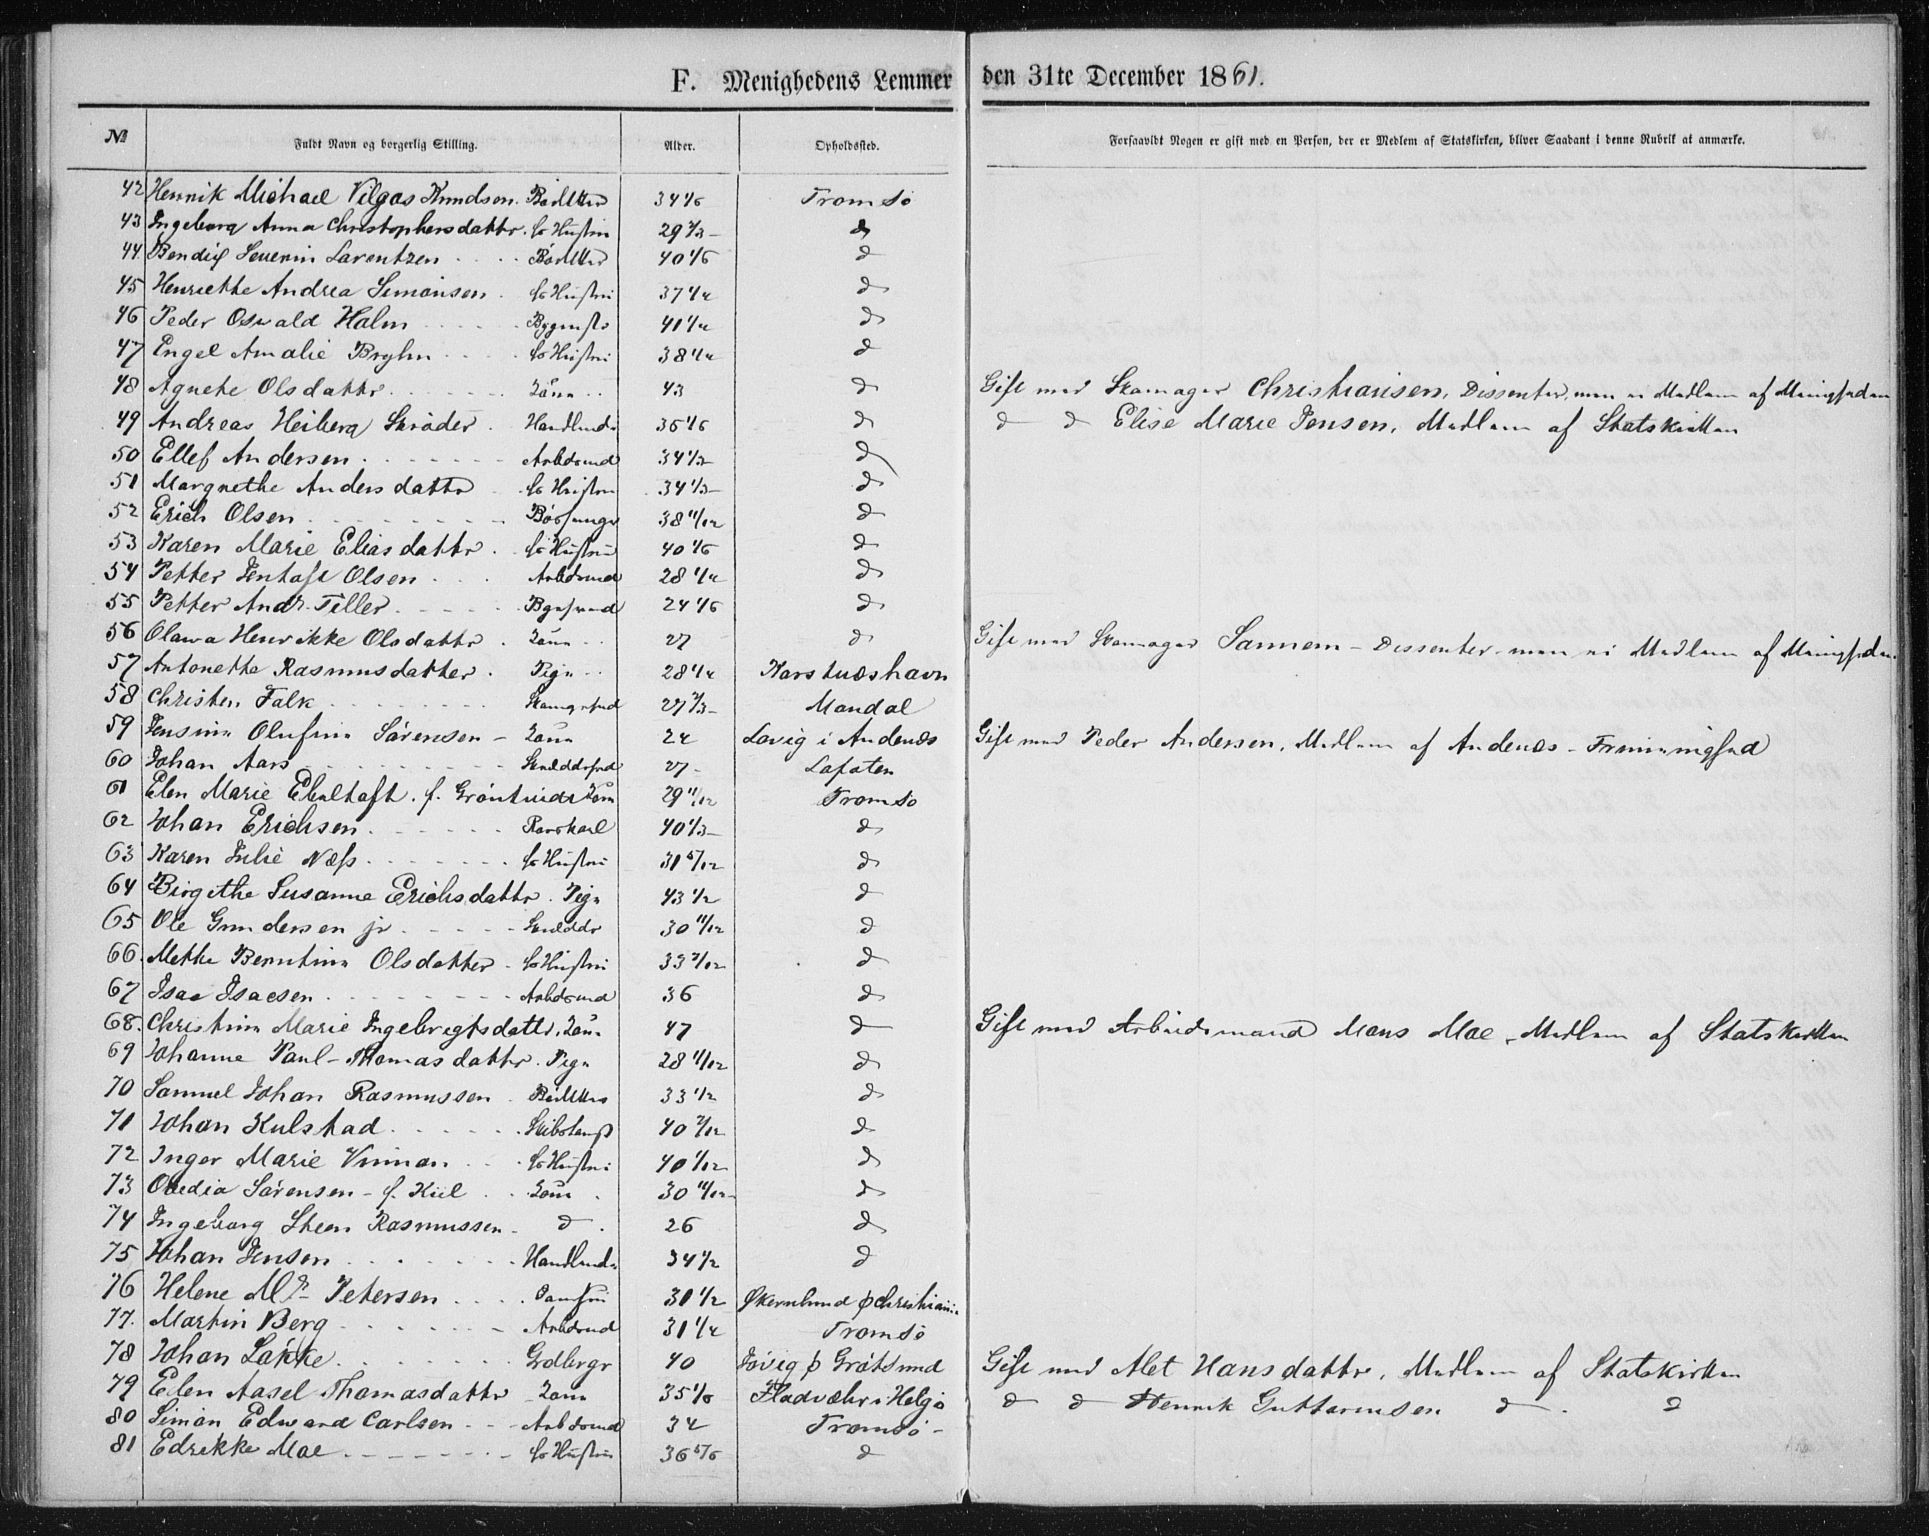 F. Menighedens Lemmer den 31te December 1861.
№ Fuldt Navn og borgerlig Stilling. Alder. Opholdssted. Forsaavidt Nogen er gift med en Person, der er Medlem af Statskirken, bliver Saadant i denne Rubrik at anmærke.
42 Henrik Michael Knudsen 34 1/6 Tromsö
43 Ingeborg Anna Christophersdattr. Hustru 29 2/3 d
44. Bendix Severin Larentzen 40 1/6 d
45 Henriette Andrea Simonsen Hustru 37 1/4 d
46 Peder Oswald Holm 41 1/4 d
47 Engel Amalie Bryhn Hustru 38 1/4 d
48 Agnete Olsdattr. 43 d Gift med Skomager Christiansen, Dissenter, men ei Medlem af Menigheden
49 Andreas Heiberg Skröder 36 1/6 d d d Elise Marie Jensen, Medlem af Statskirken
50 Ellef Andersen Arbdsmd 34 1/2 d
51 Margrethe Andersdattr Hustru 34 1/3 d
52 Erich Olsen 38 11/12 d
53 Karen Marie Eliasdattr. Hustru 40 1/6 d
54 Petter Jentoft Olsen Arbdsmd 28 1/4 d
55 Petter Andr. Tiller 24 1/6 d
56 Olava Henrikke Olsdattr 27 d Gift med Skomager Sannem - Dissenter men ei Medlem af Menigheden
57 Antonette Rasmusdatter Pige 28 1/4
58 Christen Falk 27 2/3 Mandal
59 Jensine Olufine Sörensen 24 i Andenes Gift med Peder Andersen, Medlem af Andenes Frimenighed
60 Johan Aars 27 Lofoten
61 Elen Marie Ebeltoft. f. 29 11/12 Tromsö
62 Johan Erichsen 40 1/3 d
63 Karen Julie Næss Hustru 31 5/12 d
64 Birgethe Susanne Erichsdattr. Pige 43 1/2 d
65 Ole Gundersen jr 30 11/12 d
66. Mette Berntine Olsdatter Hustru 33 7/12 d
67 Isac Isacsen Arbdsmd 36 d
68. Christine Marie Ingebrigtsdattr. 47 d Gift med Arbeidsmand Mons Moe, Medlem af Statskirken
69 Johanne Paul-Thomasdattr. Pige 28 11/12 d
70 Samuel Johan Rasmussen 33 1/2 d
71 Johan Kulstad 40 7/12 d
72 Inger Marie Hustru 40 1/12 d
73 Sörensen - f. Kiil 30 11/12 d
74 Ingeborg Steen Rasmussen d 26 d
75 Johan Jensen 34 1/2 d
76 Helene Me Petersen 31 1/2 Christiania
77. Martin Berg Arbdsmd 31 1/4 Tromsö
78 Johan Løkke 40 Grötsund Gift med Alet Hansdattr, Medlem af Statskirken
79 Elen Aasel Thomasdattr 35 1/6 i Helgö d d Henrik Guttormsen d d
80 Simon Edward Carlsen Arbdsmd 34 Tromsö
81 Edrikke Moe Hustru 36 5/6 d